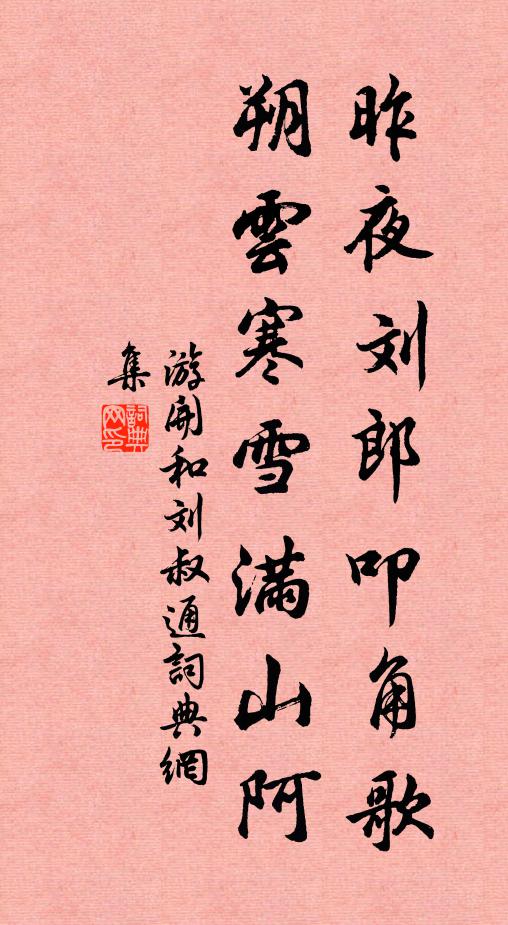 昨夜刘郎叩角歌
朔雲寒雪满山阿
游開和刘叔通詞典網
集
詞典网印